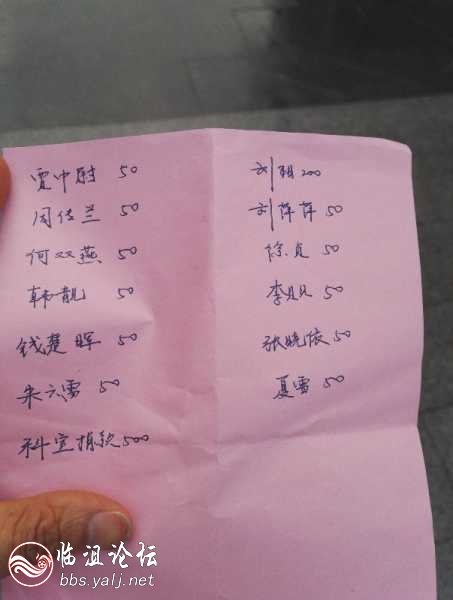 贾中尉 50
周传兰 50
何双燕 50
韩靓 50
钱楚晖 50
朱六雷 50
科室捐款500
刘 200
刘萍萍 50
徐贞 50
李 50
张晓依 50
夏雷 50
临沮论坛
bbs.yalj.net